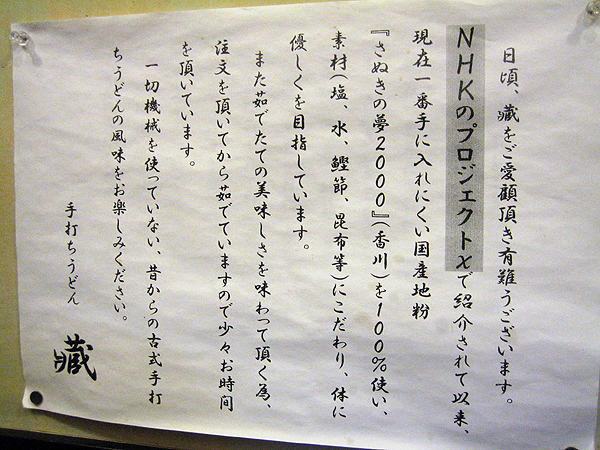 日頃、藏をご愛顧頂き有難うございます。
NHKのプロジェクトXで紹介されて以来、
現在一番手に入れにくい国産地粉
『さぬきの夢2000』(香川)を100%使い、
素材(塩、水、鰹節、昆布等)にこだわり、体に
優しくを目指しています。
また茹でたての美味しさを味わって頂く為、
注文を頂いてから茹でていますので少々お時間
を頂いています。
一切機械を使っていない、昔からの古式手打
ちうどんの風味をお楽しみください。
手打ちうどん
藏